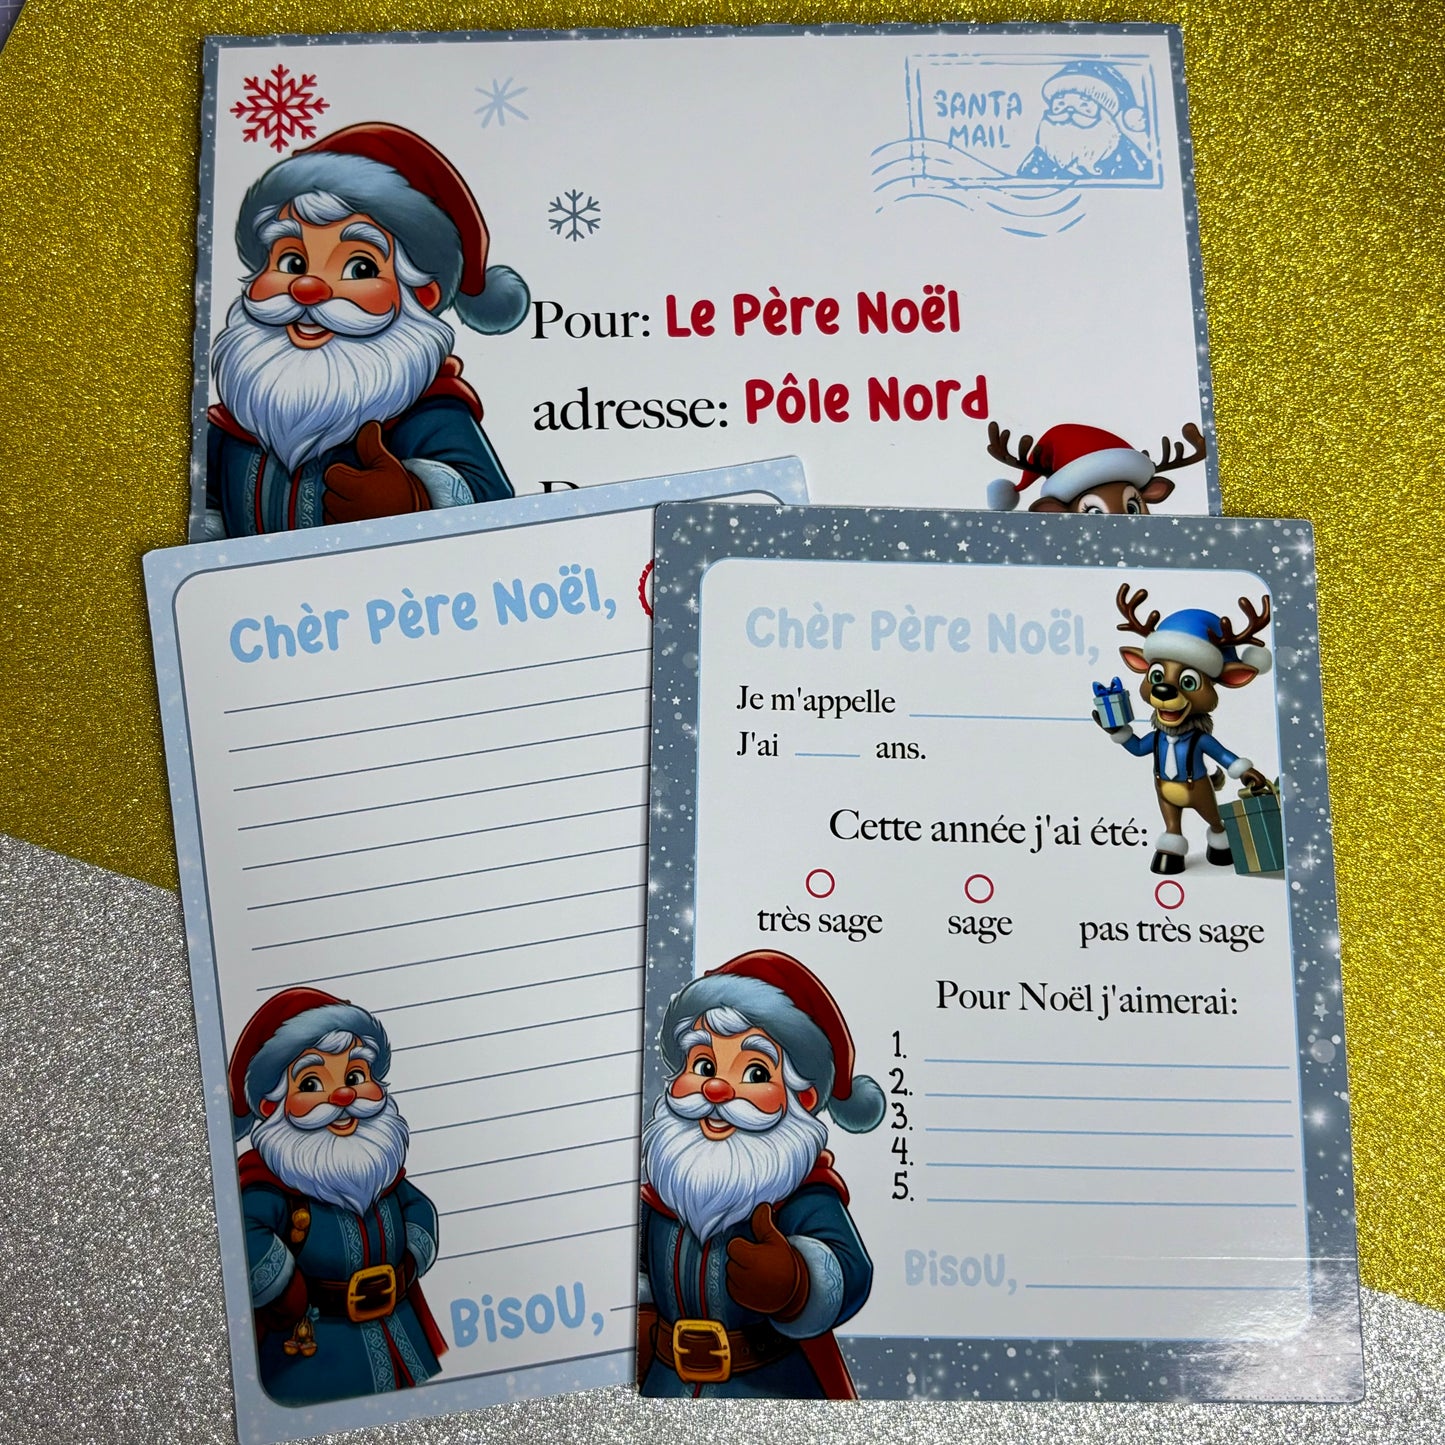 SANTA
MAIL
Pour: Le Père Noël
adresse: Pôle Nord
Chèr Père Noël,
Bisou,
Chèr Père Noël,
Je m'appelle
J'ai ans.
Cette année j'ai été:
très sage sage pas très sage
Pour Noël j'aimerai:
1.
2.
3.
4.
5.
Bisou,